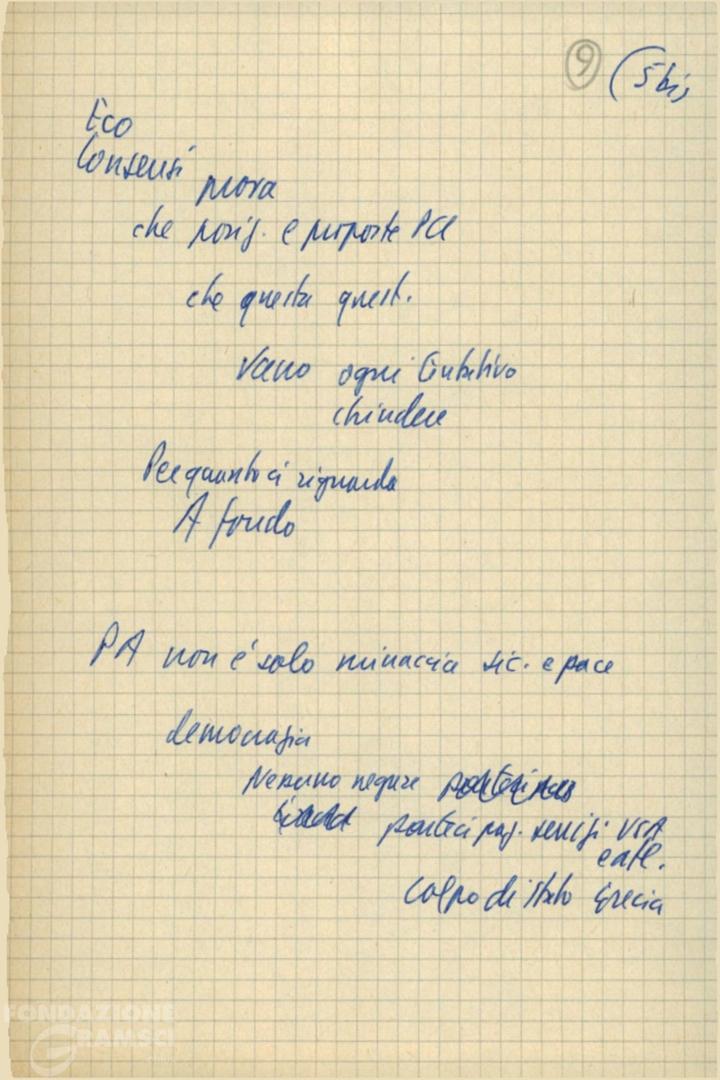 9 (5 bis
Eco
Consensi prova
che posiz. e proposte PCI
che questa quest.
Vano ogni tentativo
chiudere
Per quanto ci riguarda
A fondo
PA non è solo minaccia sic. e pace
democrazia
Nessuno negare
partecipaz. servizi USA
e atl.
colpo di Stato Grecia
FONDAZIONE
GRAMSCI